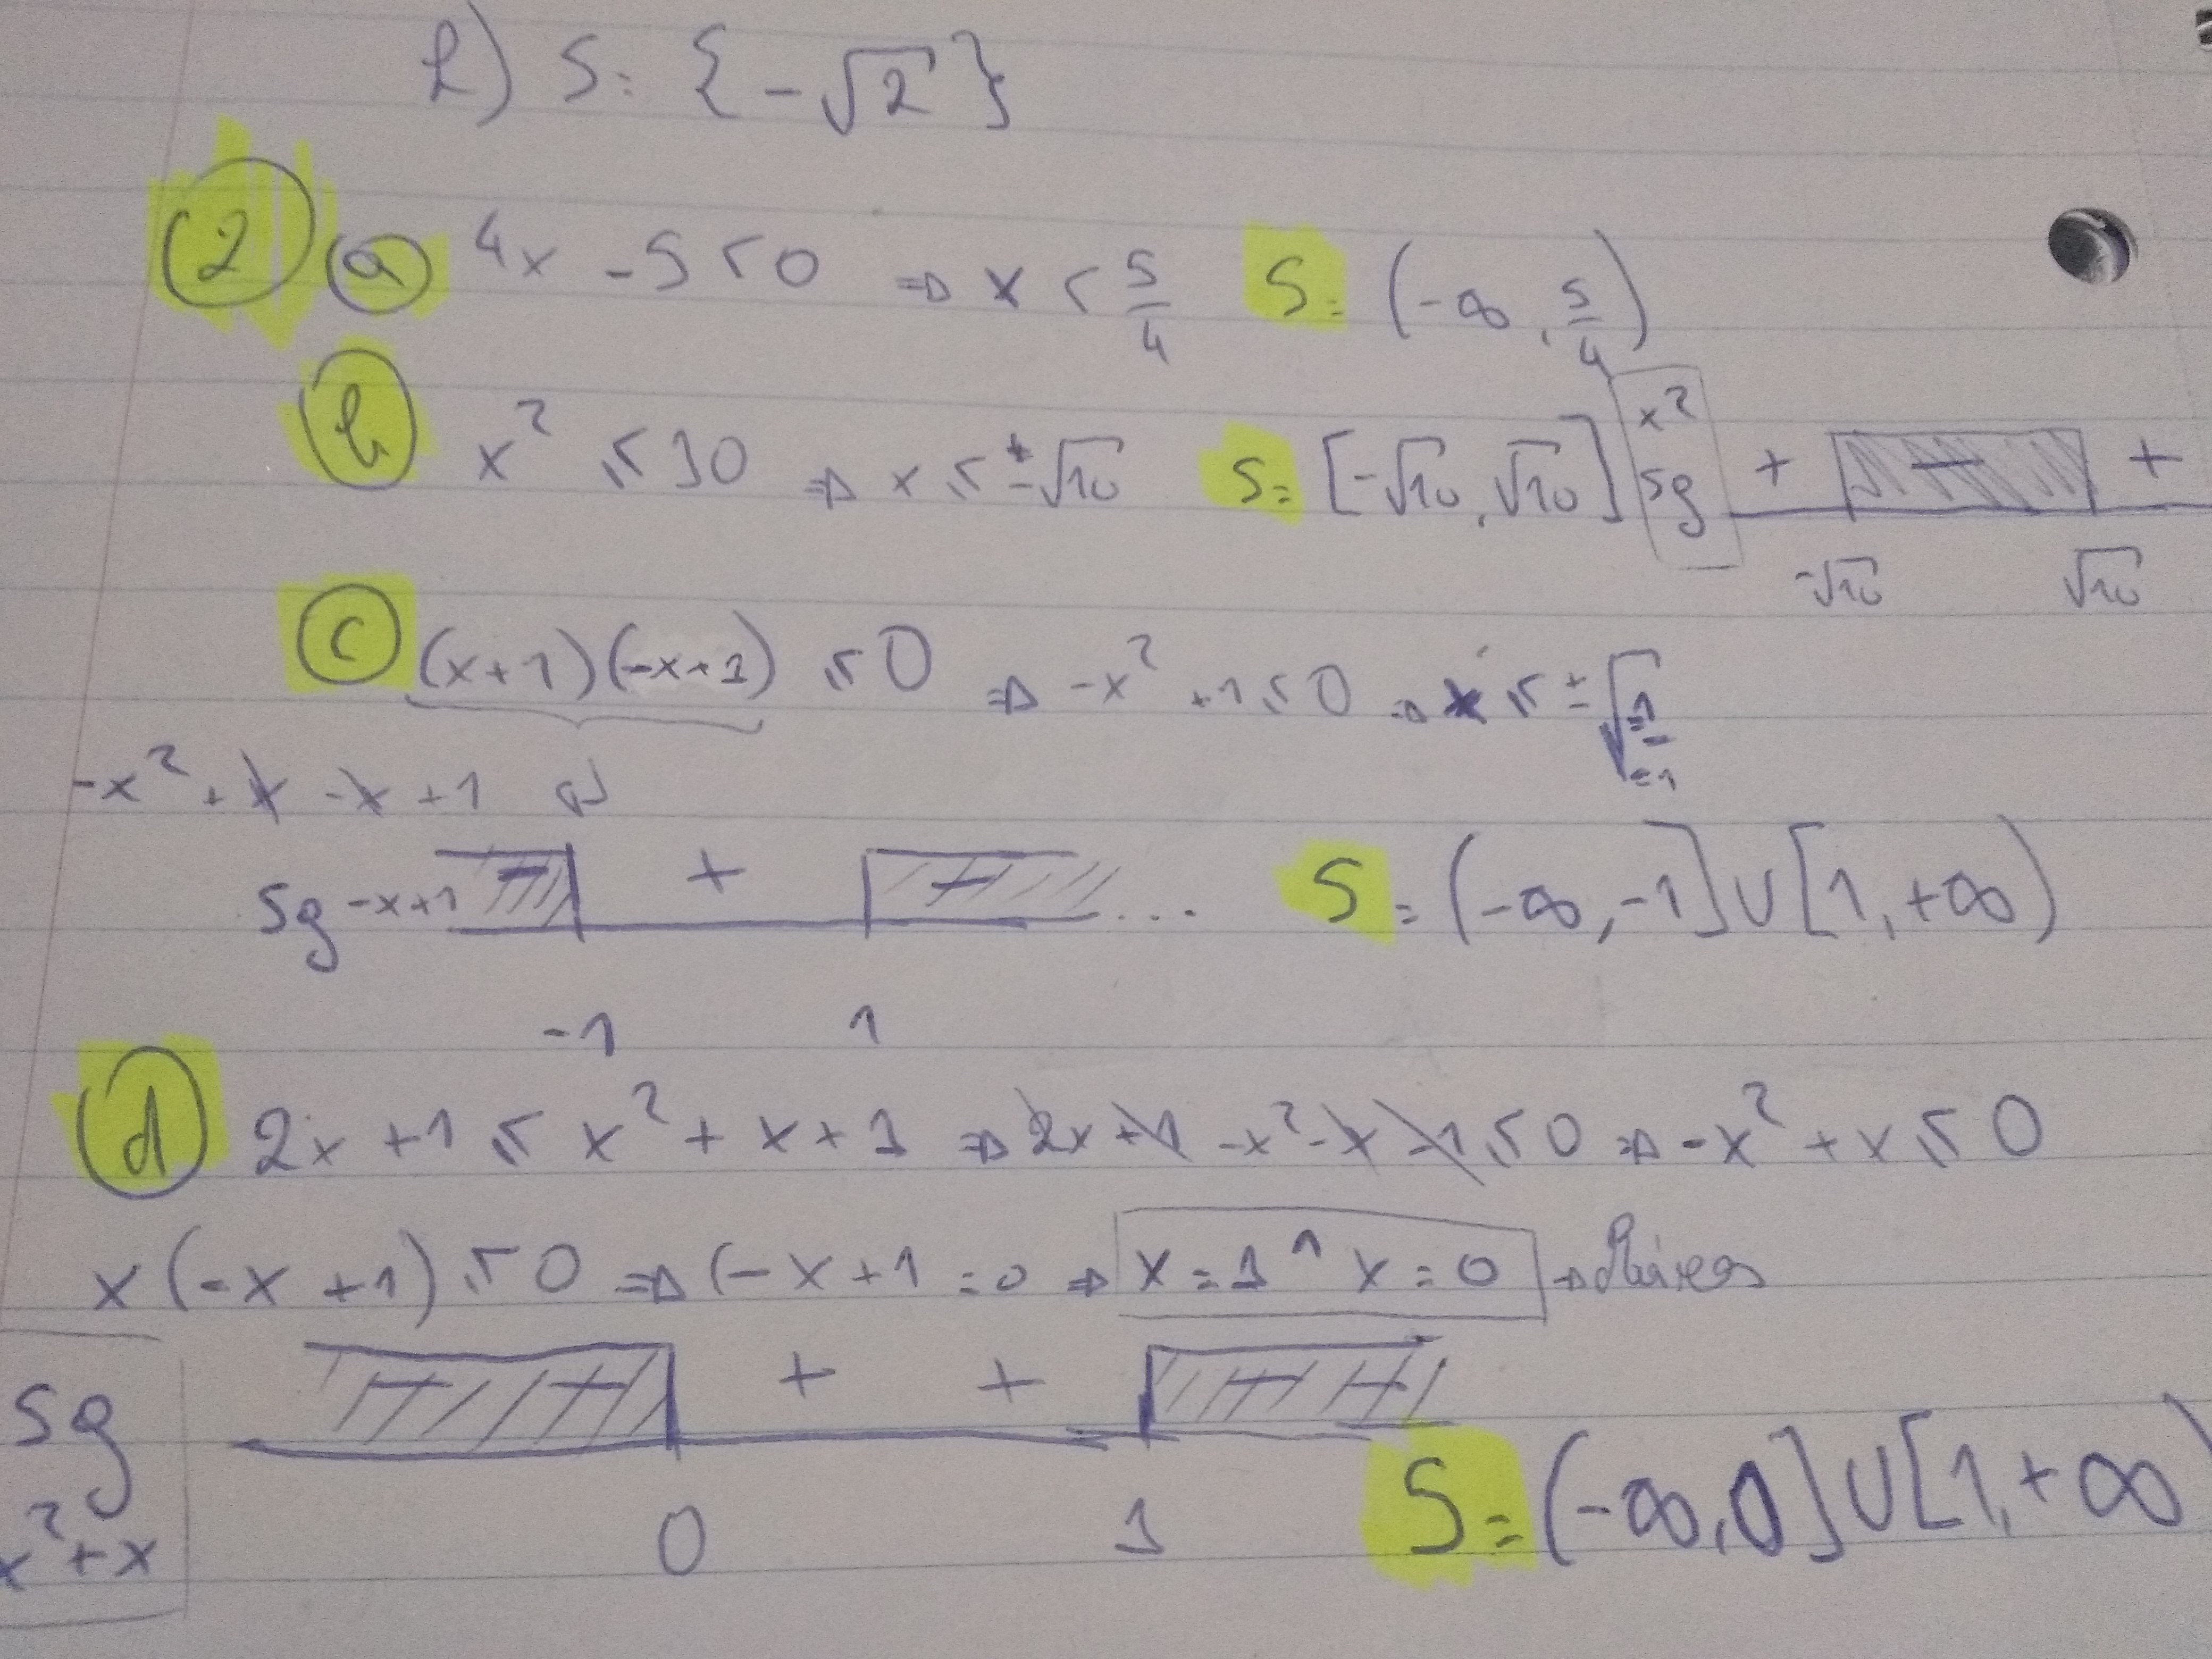 h) S: {-√2}
② ⓐ 4x - 5 < 0 ⇒ x < 5/4 S = (-∞, 5/4)
ⓑ x² ≤ 10 ⇒ x ≤ ±√10 S = [-√10, √10] x² sg + - +
-√10 √10
ⓒ (x+1)(-x+1) ≤ 0 ⇒ -x² + 1 ≤ 0 ⇒ x ≤ ±√(-1/-1)
-x² + x - x + 1
sg -x+1 - + - ... S = (-∞, -1] ∪ [1, +∞)
-1 1
ⓓ 2x + 1 ≤ x² + x + 1 ⇒ 2x + 1 - x² - x - 1 ≤ 0 ⇒ -x² + x ≤ 0
x(-x + 1) ≤ 0 ⇒ (-x + 1 = 0 ⇒ x = 1 ^ x = 0 →
sg x² + x - - + + - - S = (-∞, 0] ∪ [1, +∞)
0 1